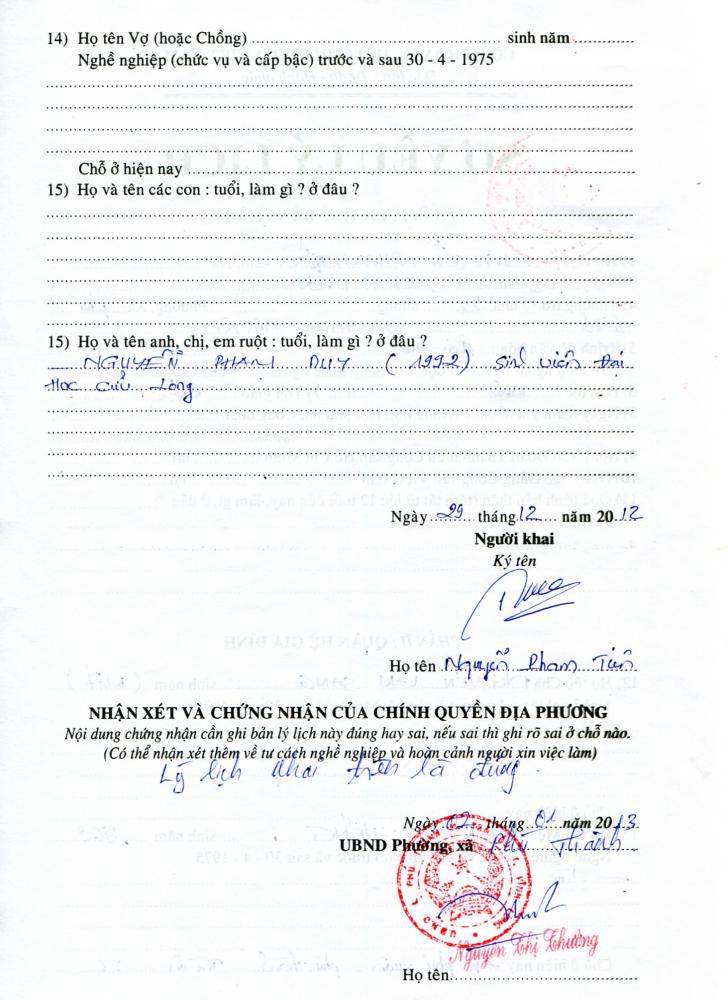 14) Họ tên Vợ (hoặc Chồng) ........ sinh năm ........
Nghề nghiệp (chức vụ và cấp bậc) trước và sau 30 - 4 - 1975
Chỗ ở hiện nay
15) Họ và tên các con : tuổi, làm gì ? ở đâu ?
15) Họ và tên anh, chị, em ruột : tuổi, làm gì ? ở đâu ?
NGUYỄN PHẠM DUY (1992) Sinh viên Đại
Học Cửu Long
Ngày 29 tháng 12 năm 2012
Người khai
Ký tên
Họ tên Nguyễn Phạm Tiên
NHẬN XÉT VÀ CHỨNG NHẬN CỦA CHÍNH QUYỀN ĐỊA PHƯƠNG
Nội dung chứng nhận cần ghi bản lý lịch này đúng hay sai, nếu sai thì ghi rõ sai ở chỗ nào.
(Có thể nhận xét thêm về tư cách nghề nghiệp và hoàn cảnh người xin việc làm)
Lý lịch khai trên là đúng
Ngày 02 tháng 01 năm 2013
UBND Phường, xã Phú Thành
Nguyễn Thị Thường
Họ tên